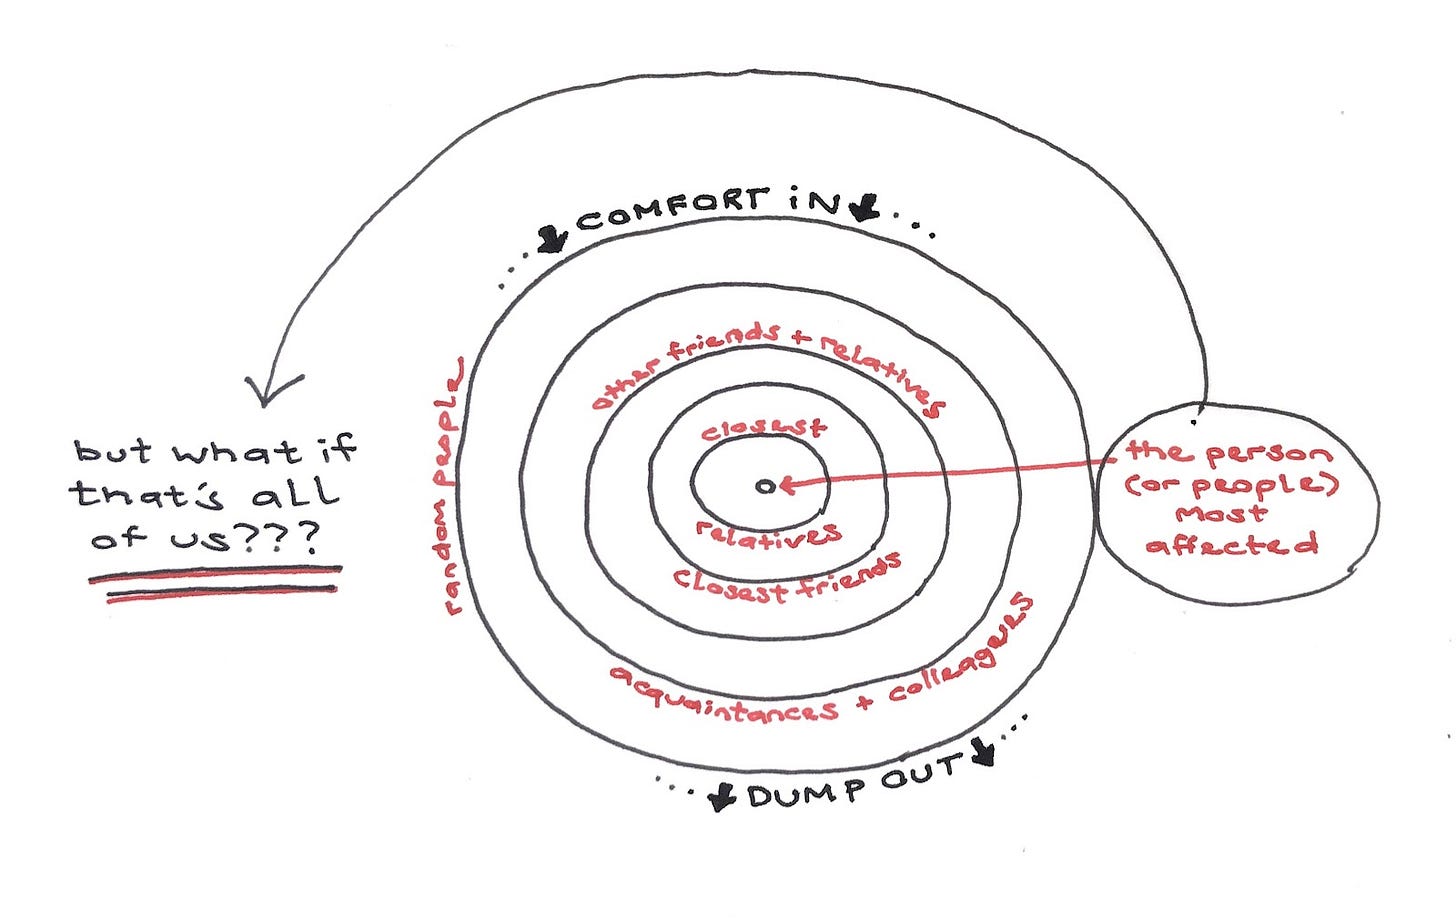 COMFORT iN
other friends + relatives
closest
relatives
closest friends
acquaintances + colleagues
random people
DUMP OUT
but what if
that's all
of us???
the person
(or people)
most
affected